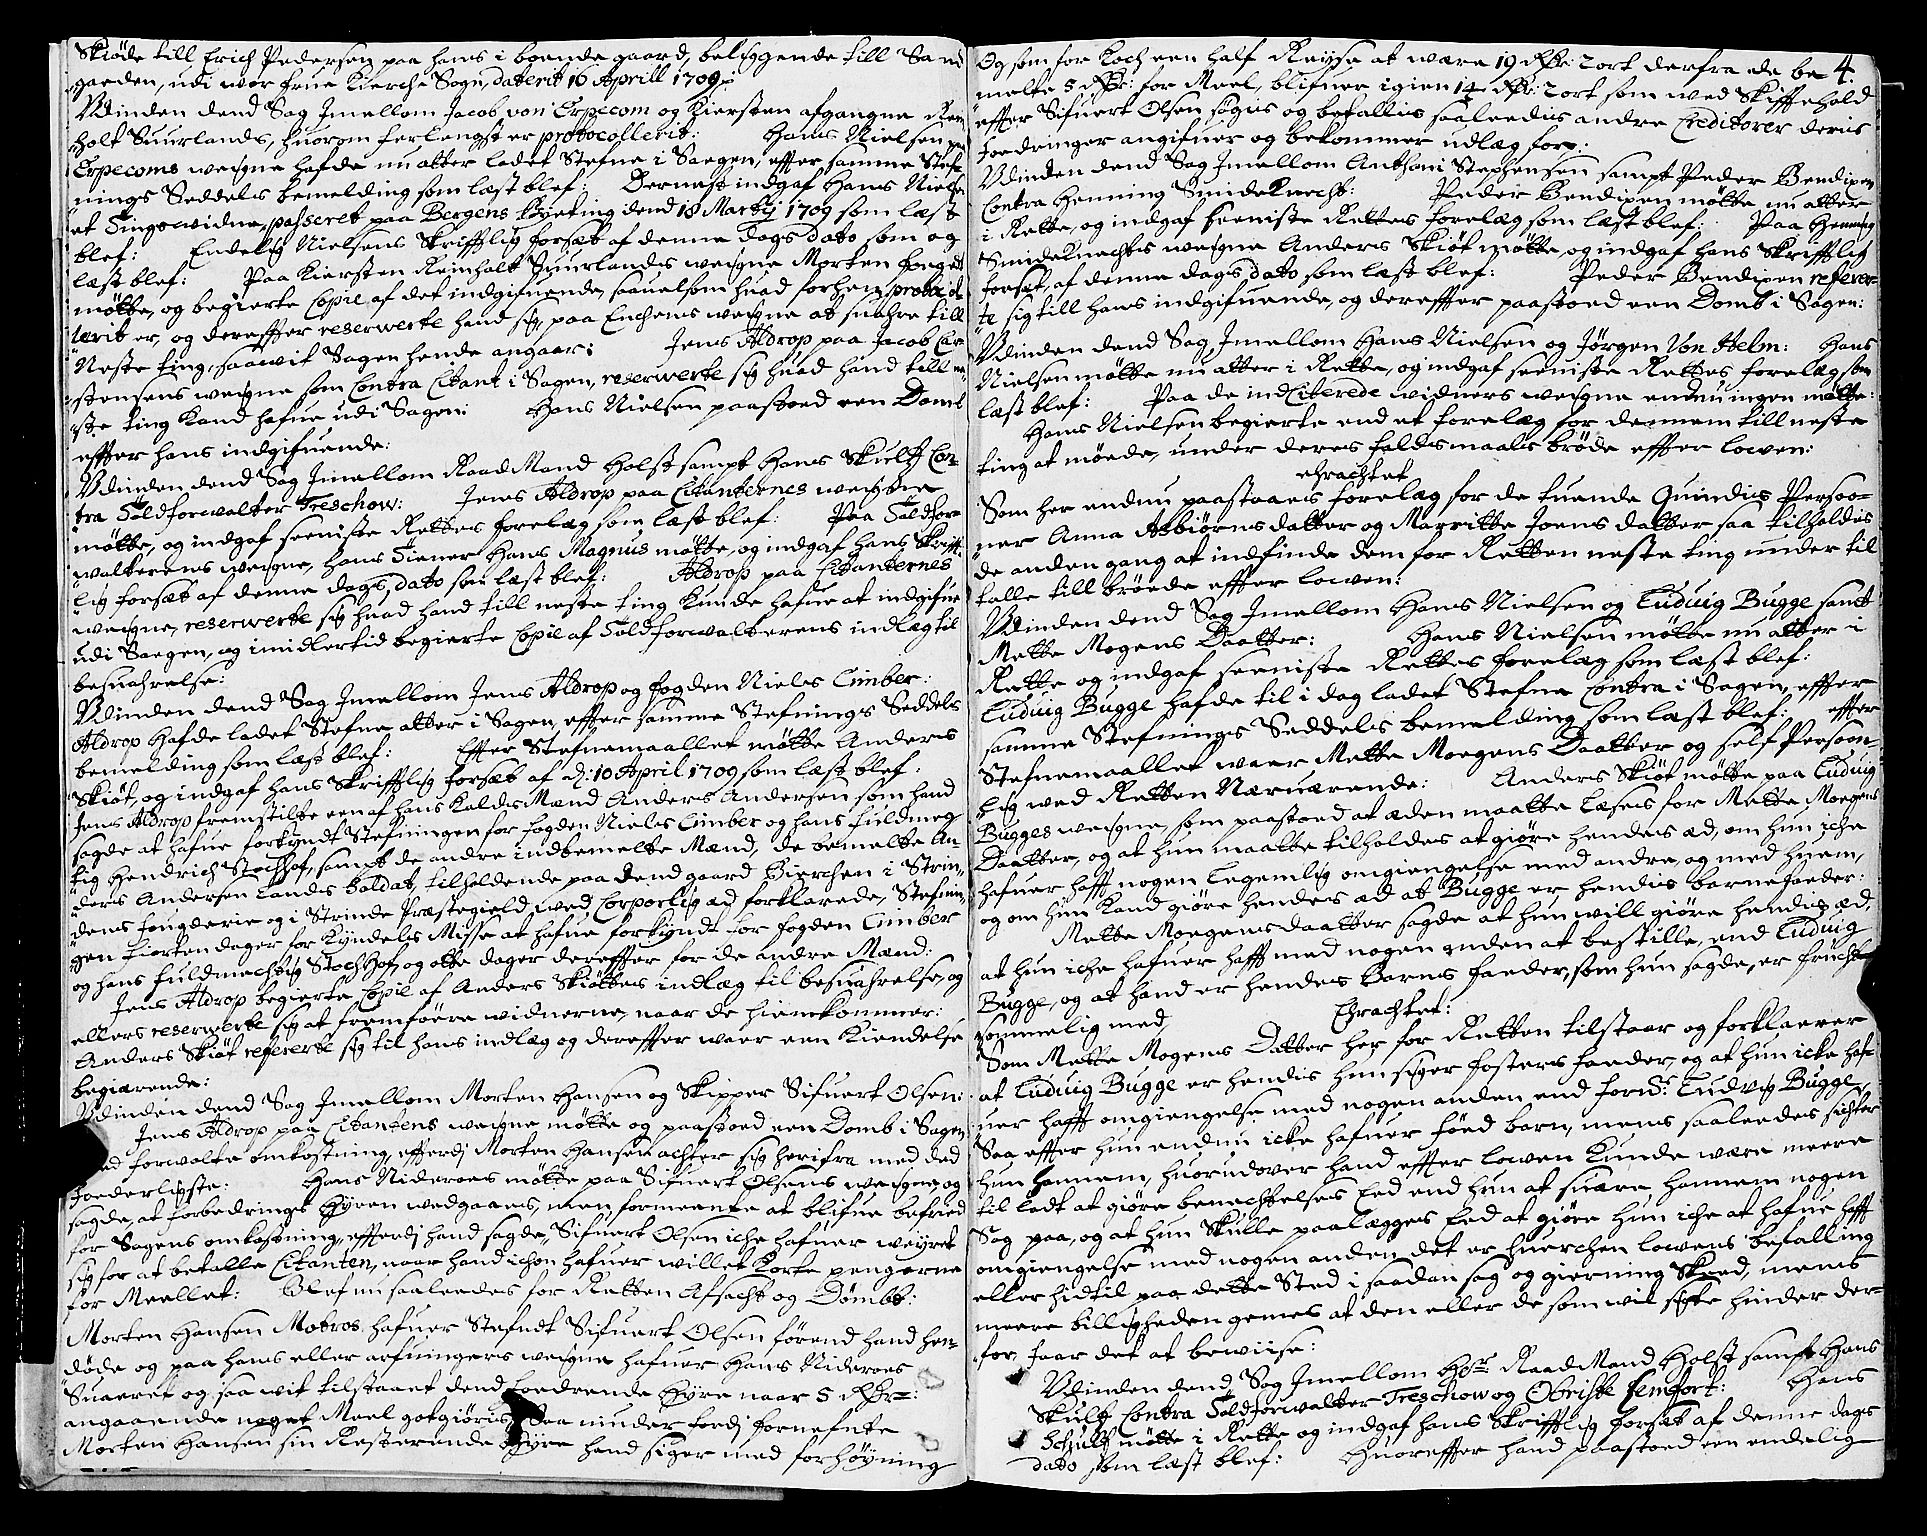 Skiöde till Erich Pedersen paa hans i boende gaard, beliggende till Sand
gaeden, udi wor frue Kierche Sogn, daterit 16 Aprill 1709:
Udinden dend Sag Imellom Jacob von Erpecom og Kiersten afgangne Rein
holt Suurlands, huorom forlengst er protocollerit: Hans Nielsen paa
Erpecoms weigne hafde nu atter ladet Stefne i Saegen, effter samme Stef-
nings Seddels bemelding som læst blef: Dernest indgaf Hans Nielsen
et Tingswidne, passeret paa Bergens byeting dend 18 Martij 1709 som læst
blef: Endelig Nielsens Skrifftlig forsæt af denne dags dato som og
læst blef: Paa Kiersten Reinholt Suurlandts weigne Morten foeget
mötte, og begierte Copie af det indgifuende, saauelsom huad forhen protocol-
lerit er, og dereffter reserwerte hand sig, paa Enchens weigne at suahre till
Neste ting, saawit Sagen hende angaar: Jens Aldrop paa Jacob Car
stensens weigne som Contra Citant i Sagen, reserwerte sig huad hand till ne-
ste ting Kand hafue udi Sagen: Hans Nielsen paastoed een Domb
effter hans indgifuende:
Udinden dend Sag Imellom Raad Mand Holst sampt Hans Skultz Con-
tra Toldforwalter Treschow: Jens Aldrop paa Citanternes weigne
mötte, og indgaf seeniste Rettes forelæg som læst blef: Paa Toldfor
walterens weigne, hans Tiener Hans Magnus mötte, og indgaf hans Skrifft-
lig forsæt af denne dags dato som læst blef: Aldrop paa Citanternes
weigne, reserwerte sig huad hand till neste ting Kunde hafue at indgifue
udi Saegen, og imidlertid begierte Copie af Toldforwalterens indlæg til
besuahrelse:
Udinden dend Sag Imellom Jens Aldrop og fogden Niels Cimber:
Aldrop hafde ladet Stefne atter i Sagen, effter samme Stefnings Seddels
bemelding som læst blef: Effter Stefnemaallet mötte Anders
Skiöt, og indgaf hans Skrifftlig forsæt af d: 10 April 1709 som læst blef:
Jens Aldrop fremstilte een af hans Kalds Mænd Anders Andersen som hand
sagde at hafue forkyndt Stefningen for fogden Niels Cimber og hans fuldmeg
tig Hendrich Stochhof, sampt de andre indbemelte Mænd, de bemelte An-
ders Andersen Landts Soldat, tilholdende paa dend gaard Bierchen i Strin-
dens fougderie og i Strinde Præstegield, wed Corporlig æd forklarede, Stefnin-
gen fiorten dager for Kyndels Misse at hafue forkyndt for fogden Cimber
og hans fuldmechtig Stochhof, og otte dager dereffter for de andre Mænd:
Jens Aldrop begierte Copie af Anders Skiöttes indlæg til besuahrelse, og
ellers reserwerte sig at fremföere widnerne, naar de hiemkommer:
Anders Skiöt refererte sig til hans indlæg og dereffter waer een Kiendelse
begiærende:
Udinden dend Sag Imellom Morten Hansen og Skipper Sifuert Olsen:
Jens Aldrop paa Citantens weigne mötte og paastoed een Domb i Sagen
forwolte omkostning, efftersom Morten Hansen achter sig herifra med ded
foederligste: Hans Nideroes mötte paa Sifuert Olsens weigne, og
sagde, at forbedrings Hyren wedgaaes, men formeente at blifue befried
for Sagens omkostning, efftersom hand sagde, Sifuert Olsen iche hafuer weyret
sig for at betalle Citanten, naar hand ichon hafuer willet Korte pengerne
for Meellet: Blef nu saaledes for Retten Afsacht og Dömbt:
Morten Hansen Motros hafuer Stefndt Sifuert Olsen förend hand hen-
döde og paa hans eller arfuingers weigne hafuer Hans Nideroes
Suaeret og saa wit tilstaaet dend foedrende Hyre naar 5 Rdr:
angaaende noget Meel gotgiöris; Saa miuder ferdj fornefnte
Morten Hansen sin Resterende Hyre hand siger med forhöyning
4
Og som for Koch een half Reyse at wære 19 Rdr: 2 ort derfra de be
melte 5 Rdr: for Meel, blifuer igien 14 Rdr: 2 ort som wed Skiffte hold
effter Sifuert Olsen söges og befallis saaledis andre Creditorer deris
foedringer angifuer og bekommer udlæg for:
Udinden dend Sag Imellom Anthoni Stephensen sampt Peder Bendixen
Contra Henning Smideknecht: Peder Bendixen mötte nu atter
i Rette, og indgaf seeniste Rettes forelæg som læst blef: Paa Henning
Smideknechts weigne Anders Skiöt mötte, og indgaf hans Skrifftlig
forsæt, af denne dags dato som læst blef: Peder Bendixen referer-
te sig till hans indgifuende, og dereffter paastoed een Domb i Sagen:
Udinden dend Sag Imellom Hans Nielsen og Jörgen Von Helm: Hans
Nielsen mötte nu atter i Rette, og indgaf seeniste Rettes forelæg som
læst blef: Paa de indCiterede widners weigne endnu ingen mötte:
Hans Nielsen begierte end et forelæg for dennem till neste
ting at möede, under deres faldsmaals bröde effter lowen:
Erachtet
Som her endnu paastaaes forelæg for de tuende Quindis Persoo-
ner Anna Asbiörnsdatter og Marritte Joens datter saa tilholdis
de anden gang at indfinde dem for Retten neste ting under til
talle till bröede effter lowen:
Udinden dend Sag Imellom Hans Nielsen og Ludvig Bugge sampt
Mette Mogens Daatter: Hans Nielsen mötte nu atter i
Rette og indgaf seeniste Rettes forelæg som læst blef:
Ludvig Bugge hafde til i dag ladet Stefne Contra i Sagen, effter
samme Stefnings Seddels bemelding som læst blef: effter
Stefnemaallet waer Mette Moegens Daatter og self Persoon-
lig wed Retten Nærwærende: Anders Skiöt mötte paa Ludvig
Bugges weigne, som paastoed at æden maatte læses for Mette Moegens
Daatter, og at hun maatte tilholdes at giöre hendes æd, om hun iche
hafuer hafft nogen legemlig omgiengelse med andre, og med huem,
og om hun Kand giöre hendes æd at Bugge er hendis barnefaeder:
Mette Moegensdaatter sagde at hun will giöre hendis æd,
at hun iche hafuer hafft med nogen anden at bestille, end Ludvig
Bugge, og at hand er hendes Barns faeder, som hun sagde, er fruchte
sommelig med, Erachtet:
Som Mette Mogens Datter her for Retten tilstaar og forklaerer
at Ludvig Bugge er hendis hun siger fosters faeder, og at hun icke haf-
uer hafft omgiengelse med nogen anden end forn: Ludvig Bugge,
Saa effter hun endnu icke hafuer föed barn, mens saaledes sichter
hun hannem, huorudover hand effter lowen Kunde wære meere
til ladt at giöre benechtelses Eed end hun at suære hannem nogen
Sag paa, og at hun Skulle paalægges Eed at giöre hun iche at hafue hafft
omgiengelse med nogen anden det er huerchen lowens befalling
eller hidtil paa dette Sted i saadan sag og gierning Skeed, mens
meere billigheden gemes at den eller de som wil sigte hinder der-
for, faar det at bewiise:
Udinden dend Sag Imellom Hr: Raad Mand Holst sampt Hans
Skultz Contra Toldforwalter Treschow og Obriste Lemfort: Hans
Schultz mötte i Rette og indgaf hans Skrifftlig forsæt af denne dags
dato som læst blef: Huoreffter hand paastoed een endelig